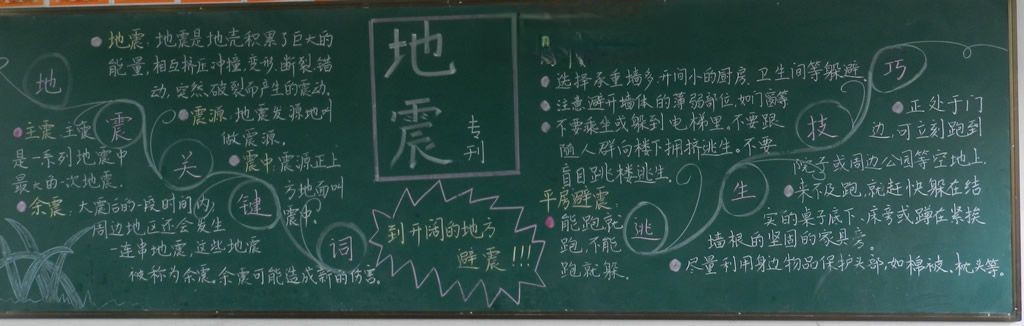 地震关键词
地震：地震是地壳积累了巨大的
能量，相互挤压冲撞，变形，断裂，错
动，突然破裂而产生的震动。
震源：地震发源地叫
做震源。
主震：主震
是一系列地震中
最大的一次地震。
震中：震源正上
方地面叫
震中。
余震：大震后的一段时间内，
周边地区还会发生
一连串地震，这些地震
被称为余震。余震可能造成新的伤害。
地震
专刊
到开阔的地方
避震!!!
逃生技巧
选择承重墙多，开间小的厨房、卫生间等躲避
注意避开墙体的薄弱部位，如门窗等
不要乘坐或躲到电梯里，不要跟
随人群向楼下拥挤逃生。不要
盲目跳楼逃生。
平房避震：
能跑就
跑，不能
跑就躲。
正处于门
边，可立刻跑到
院子或周边公园等空地上.
来不及跑，就赶快躲在结
实的桌子底下、床旁或蹲在紧挨
墙根的坚固的家具旁。
尽量利用身边物品保护头部，如棉被、枕头等。